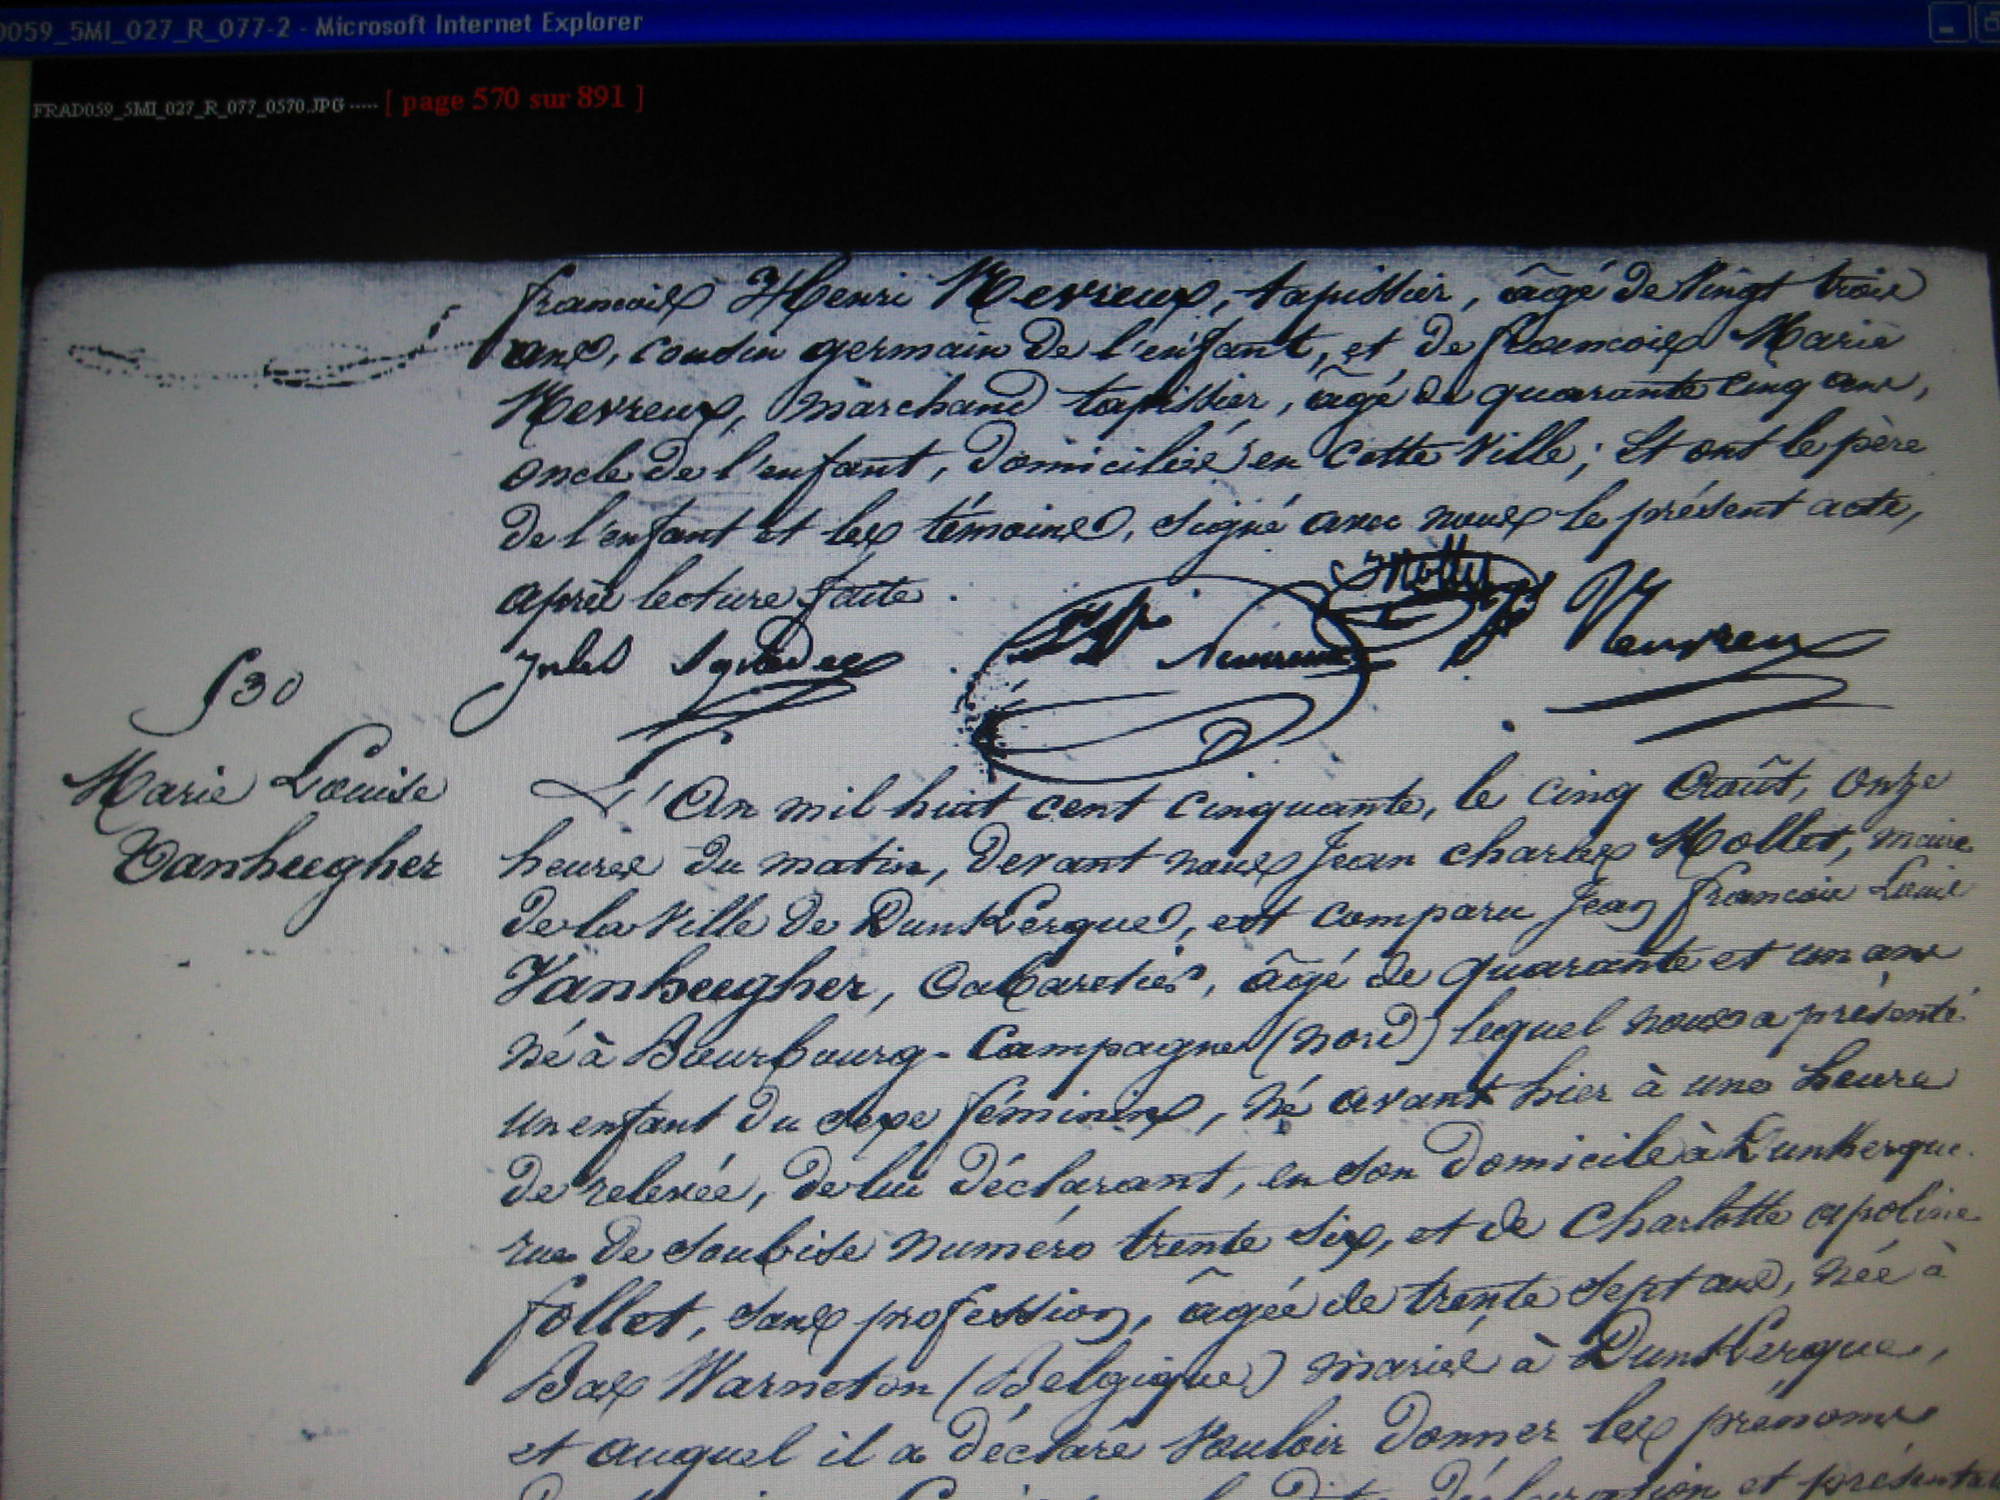 D059_5MI_027_R_077-2 - Microsoft Internet Explorer
FRAD059_5MI_027_R_077_0570.JPG ----- [ page 570 sur 891 ]
francois Henri Nevreux, tapissier, âgé de vingt trois
ans, cousin germain de l'enfant, et de francois Marie
Nevreux, marchand tapissier, âgé de quarante cinq ans,
oncle de l'enfant, domiciliés en cette ville; et ont le père
de l'enfant et les témoins, signé avec nous le présent acte,
après lecture faite.
Mollet
Jules
530
Marie Louise
Vanheegher
L'An mil huit cent cinquante, le cinq Août, onze
heures du matin, devant nous Jean charles Mollet, maire
de la ville de Dunkerque, est comparu Jean francois Louis
Vanheegher, Cabaretier, âgé de quarante et un ans
né à Bourbourg-Campagne (nord) lequel nous a présenté
un enfant du sexe féminin, né avant hier à une heure
de relevée, de lui déclarant, en son domicile à Dunkerque
rue de Soubise numéro trente six, et de Charlotte apoline
follet, sans profession, âgée de trente sept ans, née à
Bas Warneton (Belgique) mariés à Dunkerque,
et auquel il a déclaré vouloir donner les prénoms
déclaration et présentation